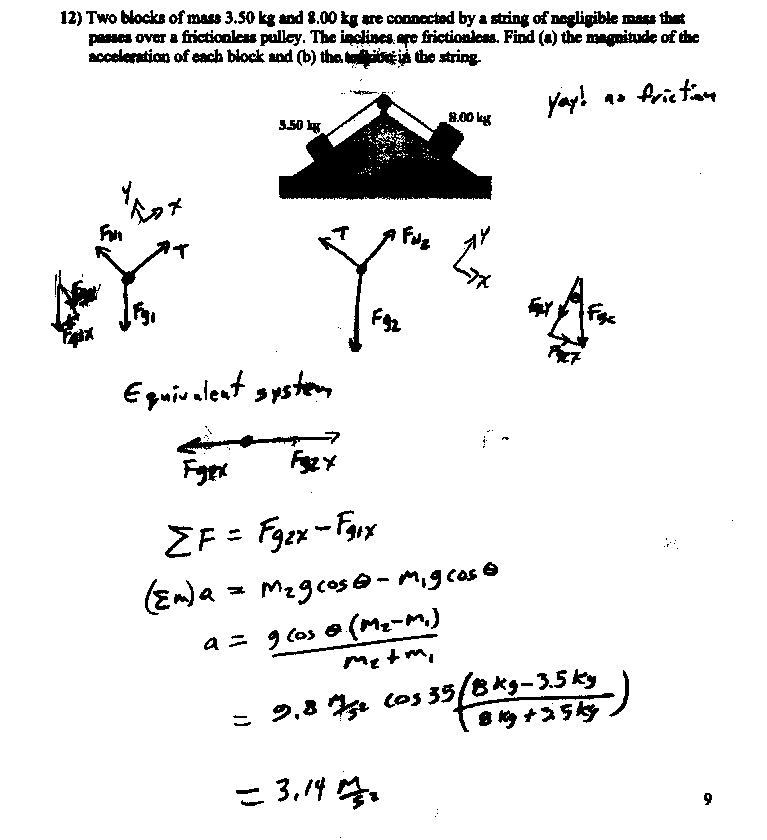 12) Two blocks of mass 3.50 kg and 8.00 kg are connected by a string of negligible mass that
passes over a frictionless pulley. The inclines are frictionless. Find (a) the magnitude of the
acceleration of each block and (b) the tension in the string.
Yay! no friction
3.50 kg
8.00 kg
Y X
FN1 T
Fg1
Fg1X
T FN2
Fg2
Y X
Fg2Y
Equivalent system
ΣF = Fg2x - Fg1x
(Σm)a = m2g cos θ - m1g cos θ
a = g cos θ (m2-m1)
m2 + m1
= 9.8 m/s² cos 35 (8 kg - 3.5 kg
8 kg + 3.5 kg)
= 3.14 m/s²
9